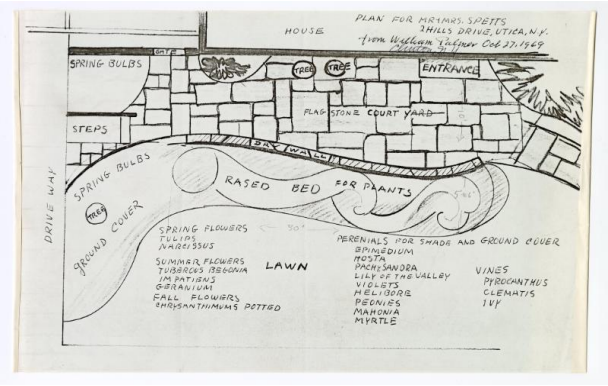 PLAN FOR MR+MRS. SPETTS
2 HILLS DRIVE, UTICA, N.Y.
from William Palmer Oct 27. 1969
Clinton, N.Y.
HOUSE
GATE
SPRING BULBS
TREE
TREE
ENTRANCE
FLAG STONE COURT YARD
STEPS
DRY WALL
SPRING BULBS
RASED BED FOR PLANTS
TREE
GROUND COVER
DRIVE WAY
30'
SPRING FLOWERS
TULIPS
NARCISSUS
SUMMER FLOWERS
TUBEROUS BEGONIA
IMPATIENS
GERANIUM
FALL FLOWERS
CHRYSANTHIMUMS POTTED
LAWN
PERENIALS FOR SHADE AND GROUND COVER
EPIMEDIUM
HOSTA
PACHYSANDRA
LILY OF THE VALLEY
VIOLETS
HELIBORE
PEONIES
MAHONIA
MYRTLE
VINES
PYROCANTHUS
CLEMATIS
IVY